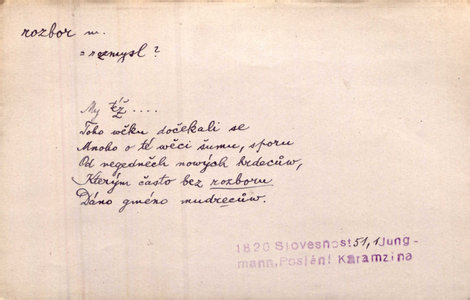 rozbor m.
= rozmysl?
My též ....
Toho wěku dočekali se
Mnoho o té wěci šumu, sporu
Od negedněch nowých hrdecůw,
Kterým často bez rozboru
Dáno gméno mudrecůw.
1820 Slovesnost 51,1 Jung-
mann, Posléní Karamzina